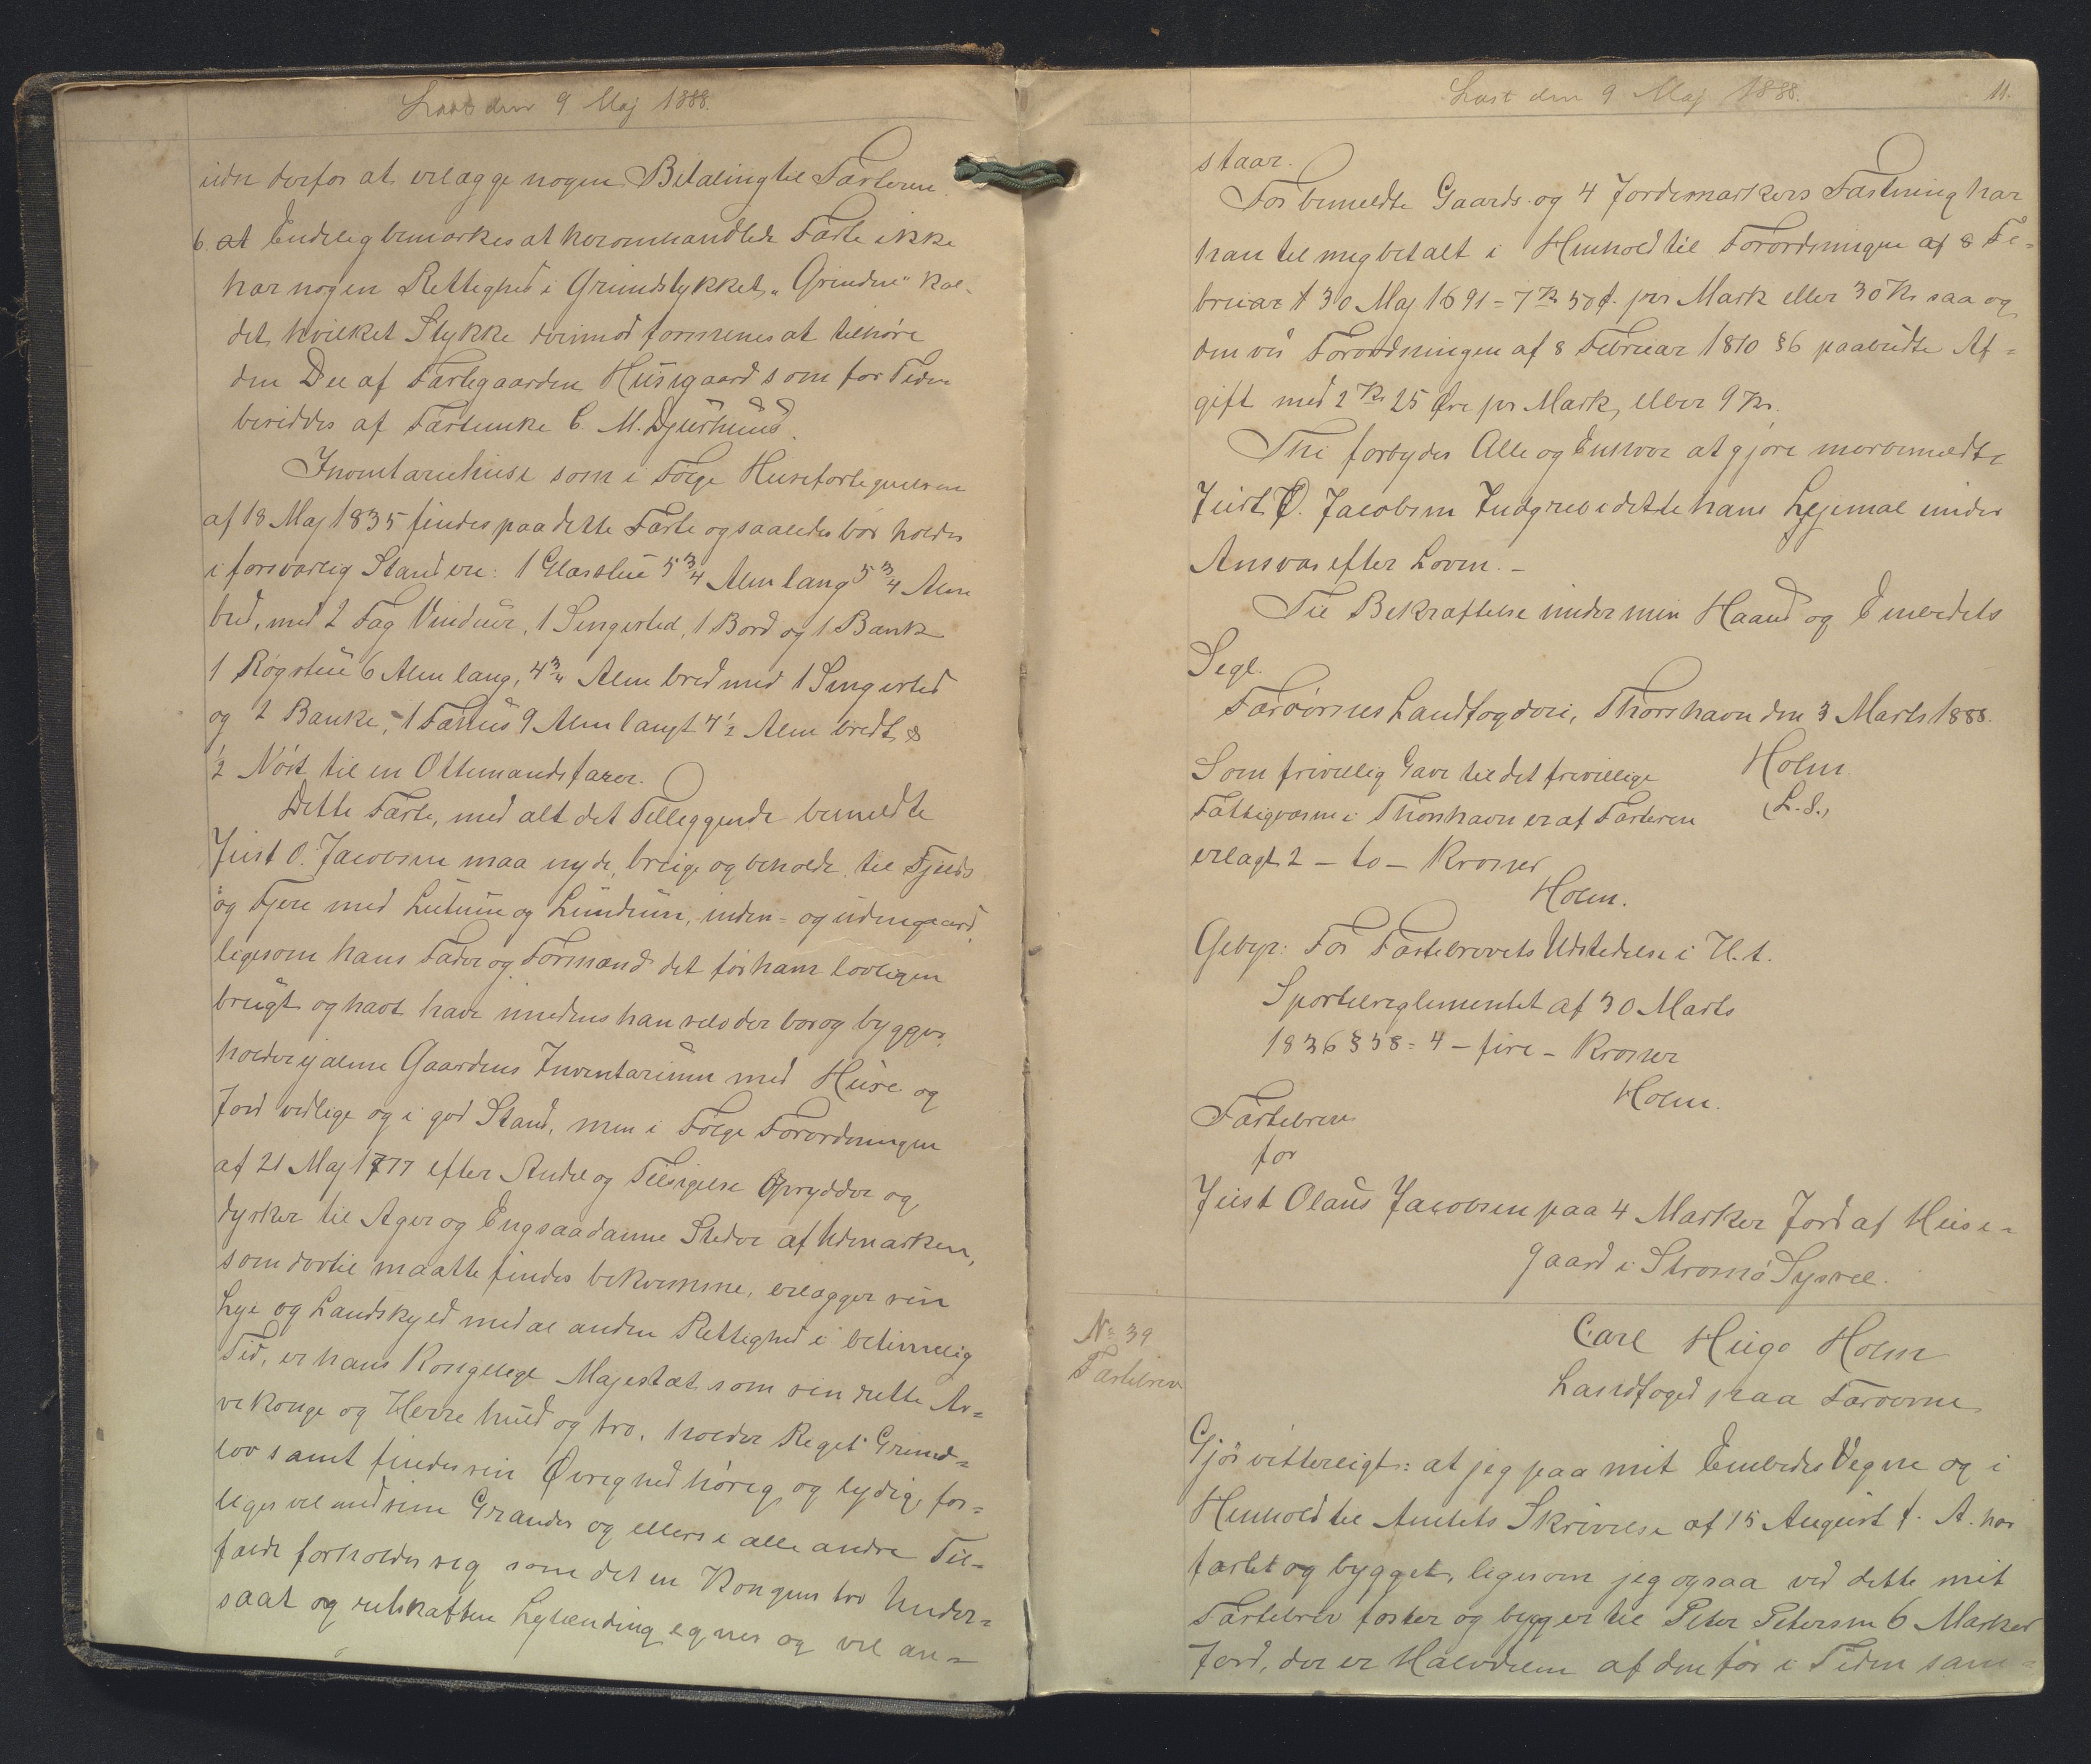 Læst den 9 Maj 1888.
uden derfor at erlægge nogen Betaling til Fæsteren.
6. at Endelig bemærkes at heromhandlede Fæste ikke
har nogen Rettighed i Grundstykket, "Grinden" kal-
det, hvilket Stykke derimod formenes at tilhøre
den Del af Fæstegaarden Husegaard som for Tiden
besiddes af Fæstenke C. M. Djurhuus.
Inventariehuse som i Følge Husefortegnelsen
af 18 Maj 1835 findes paa dette Fæste og saaledes bør holdes
i forsvarlig Stand ere: 1 Glasstue 5 3/4 Alen lang 5 3/4 Alen
bred, med 2 Fag Vinduer, 1 Sengested, 1 Bord og 1 Bænk
1 Røgstue 6 Alen lang, 4 3/4 Alen bred med 1 Sengested
og 2 Bænke, 1 Fæhus 9 Alen langt 4 1/2 Alen bredt &
1/2 Nøst til en Ottemandsfarer.
Dette Fæste, med alt det Tilleggende bemeldte
Just O. Jacobsen maa nyde, bruge og beholde, til Fjelds
og Fjere med Lutum og Lundum, inden= og udengaard,
ligesom hans Fader og Formænd det før ham lovligen
brugt og havt have imedens han selv der bor og bygger,
holder ej alene Gaardens Inventarium med Huse og
Jord vedlige og i god Stand, men i Følge Forordningen
af 21 Maj 1777 efter Andel og Tilsigelse Oprydder og
dyrker til Ager og Eng saadanne Steder af Udmarken,
som dertil maatte findes bekvemme, erlægger sin
Leje og Landskyld med al anden Rettighed i betimelig
Tid, er hans Kongelige Majestæt som sin rette Ar=
vekonge og Herre huld og tro, holder Riget Grund=
lov samt findes sin Øvrighed hørig og lydig, for=
liges vel med sine Grander og ellers i alle andre Til=
fælde forholder sig som det en Kongens tro Under=
saat og retskaffen Lejlending egner og vel an=
Læst den 9 Maj 1888.
11.
staar.
For bemeldte Gaards og 4 Jordemarkers Fæstning har
han til mig betalt i Henhold til Forordningen af 8 Fe=
bruar & 30 Maj 1691 = 7 Kr 50 Ø. per Mark eller 30 Kr saa og
den ved Forordningen af 8 Februar 1810 §6 paabudte Af=
gift med 2 Kr 25 Øre pr Mark, eller 9 Kr.
Thi forbydes Alle og Enhver at gjøre merbemeldte
Just O. Jacobsen Indgreb i dette hans Lejemal under
Ansvar efter Loven. –
Til Bekræftelse under min Haand og Embedets
Segl.
Færøernes Landfogderi, Thorshavn den 3 Marts 1888.
Som frivillig Gave til det frivillige
Holm.
Fattigvæsen i Thorshavn er af Fæsteren
(L. S.)
erlagt 2 – to – Kroner
Holm.
Gebyr: For Fæstebrevets Udstedelse i H. t.
Sportelreglementet af 30 Marts
1836 § 58 = 4 – fire – Kroner
Holm.
Fæstebrev
for
Just Olaus Jacobsen paa 4 Marker Jord af Huse=
gaard i Strømø Syssel.
No 39
Fæstebrev
Carl Hugo Holm
Landfoged paa Færøerne
Gjør vitterligt: at jeg paa mit Embedes Vegne og i
Henhold til Amtets Skrivelse af 15 August f. A. har
fæstet og bygget, ligesom jeg ogsaa ved dette mit
Fæstebrev fæster og bygger til Peter Petersen 6 Marker
Jord, der er Halvdelen af den før i Tiden sam=